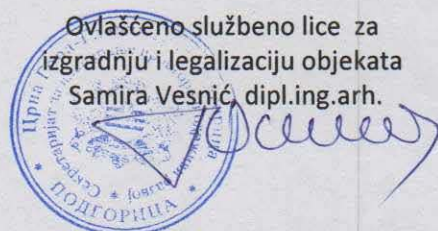 Ovlašćeno službeno lice za
izgradnju i legalizaciju objekata
Samira Vesnić, dipl.ing.arh.
Црна Гора
Секретаријат
развој
ПОДГОРИЦА